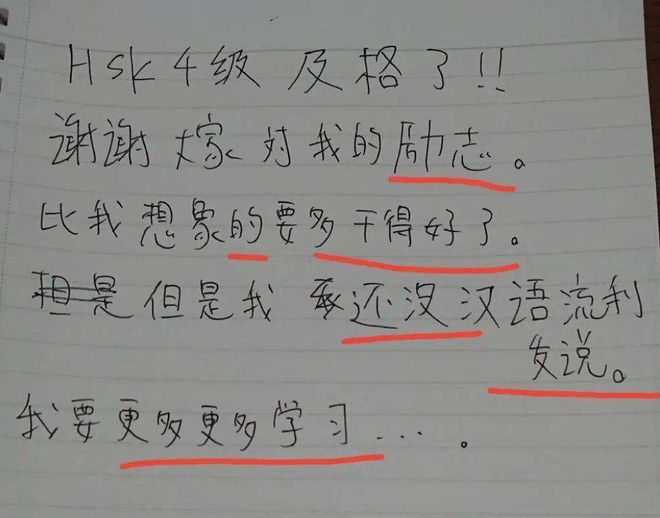 Hsk4级 及格了!!
谢谢大家对我的励志。
比我想象的要多干得好了。
但是我还没汉语流利
发说。
我要更多更多学习…。